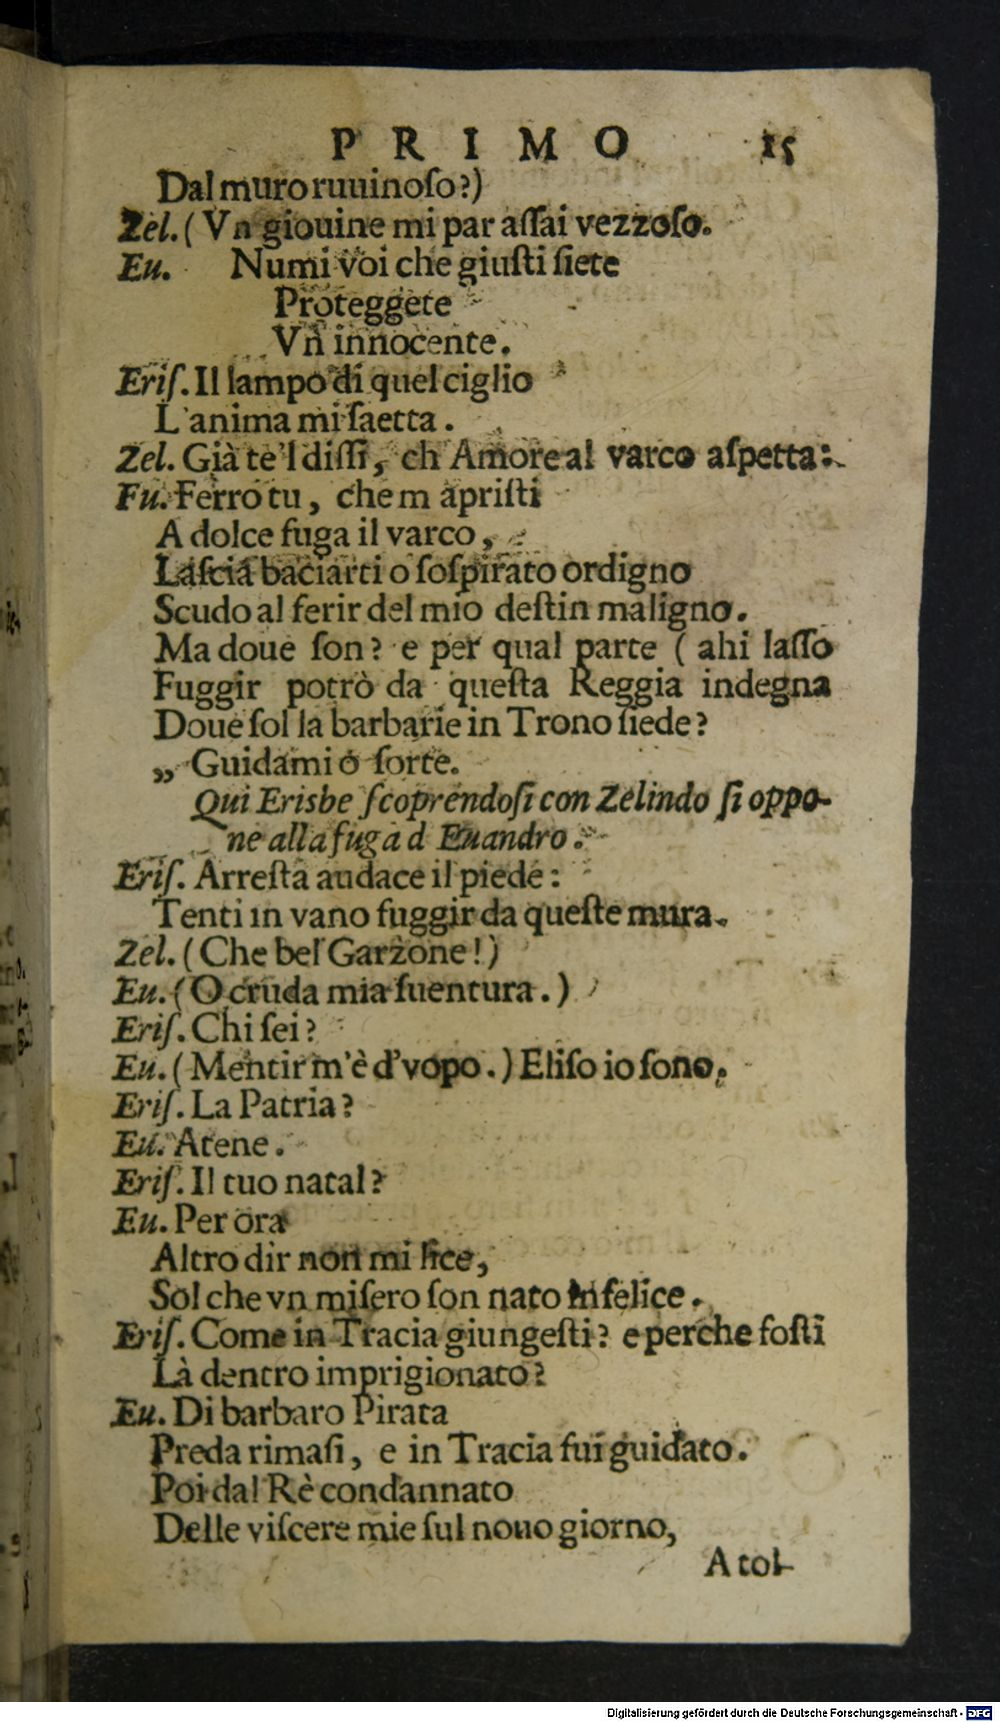 PRIMO 15
Dal muro ruuinoſo?)
Zel. (Vn giouine mi par aſſai vezzoſo.
Eu. Numi voi che giuſti ſiete
Proteggete
Vn innocente.
Eriſ. Il lampo di quel ciglio
L'anima mi ſaetta.
Zel. Già te'l diſſi, ch Amore al varco aſpetta:
Fu. Ferro tu, che m apriſti
A dolce fuga il varco,
Laſcia baciarti o ſoſpirato ordigno
Scudo al ferir del mio deſtin maligno.
Ma doue ſon? e per qual parte (ahi laſſo
Fuggir potrò da queſta Reggia indegna
Doue ſol la barbarie in Trono ſiede?
„ Guidami ò ſorte.
Qui Erisbe ſcoprendoſi con Zelindo ſi oppo-
ne alla fuga d Euandro.
Eriſ. Arreſta audace il piede:
Tenti in vano fuggir da queſte mura.
Zel. (Che bel Garzone!)
Eu. (O cruda mia ſuentura.)
Eriſ. Chi ſei?
Eu. (Mentir m'è d'vopo.) Eliſo io ſono.
Eriſ. La Patria?
Eu. Atene.
Eriſ. Il tuo natal?
Eu. Per ora
Altro dir non mi lice,
Sol che vn miſero ſon nato infelice.
Eriſ. Come in Tracia giungeſti? e perche foſti
Là dentro imprigionato?
Eu. Di barbaro Pirata
Preda rimaſi, e in Tracia fui guidato.
Poi dal Rè condannato
Delle viſcere mie ſul nouo giorno,
A tol-
Digitalisierung gefördert durch die Deutsche Forschungsgemeinschaft - DFG